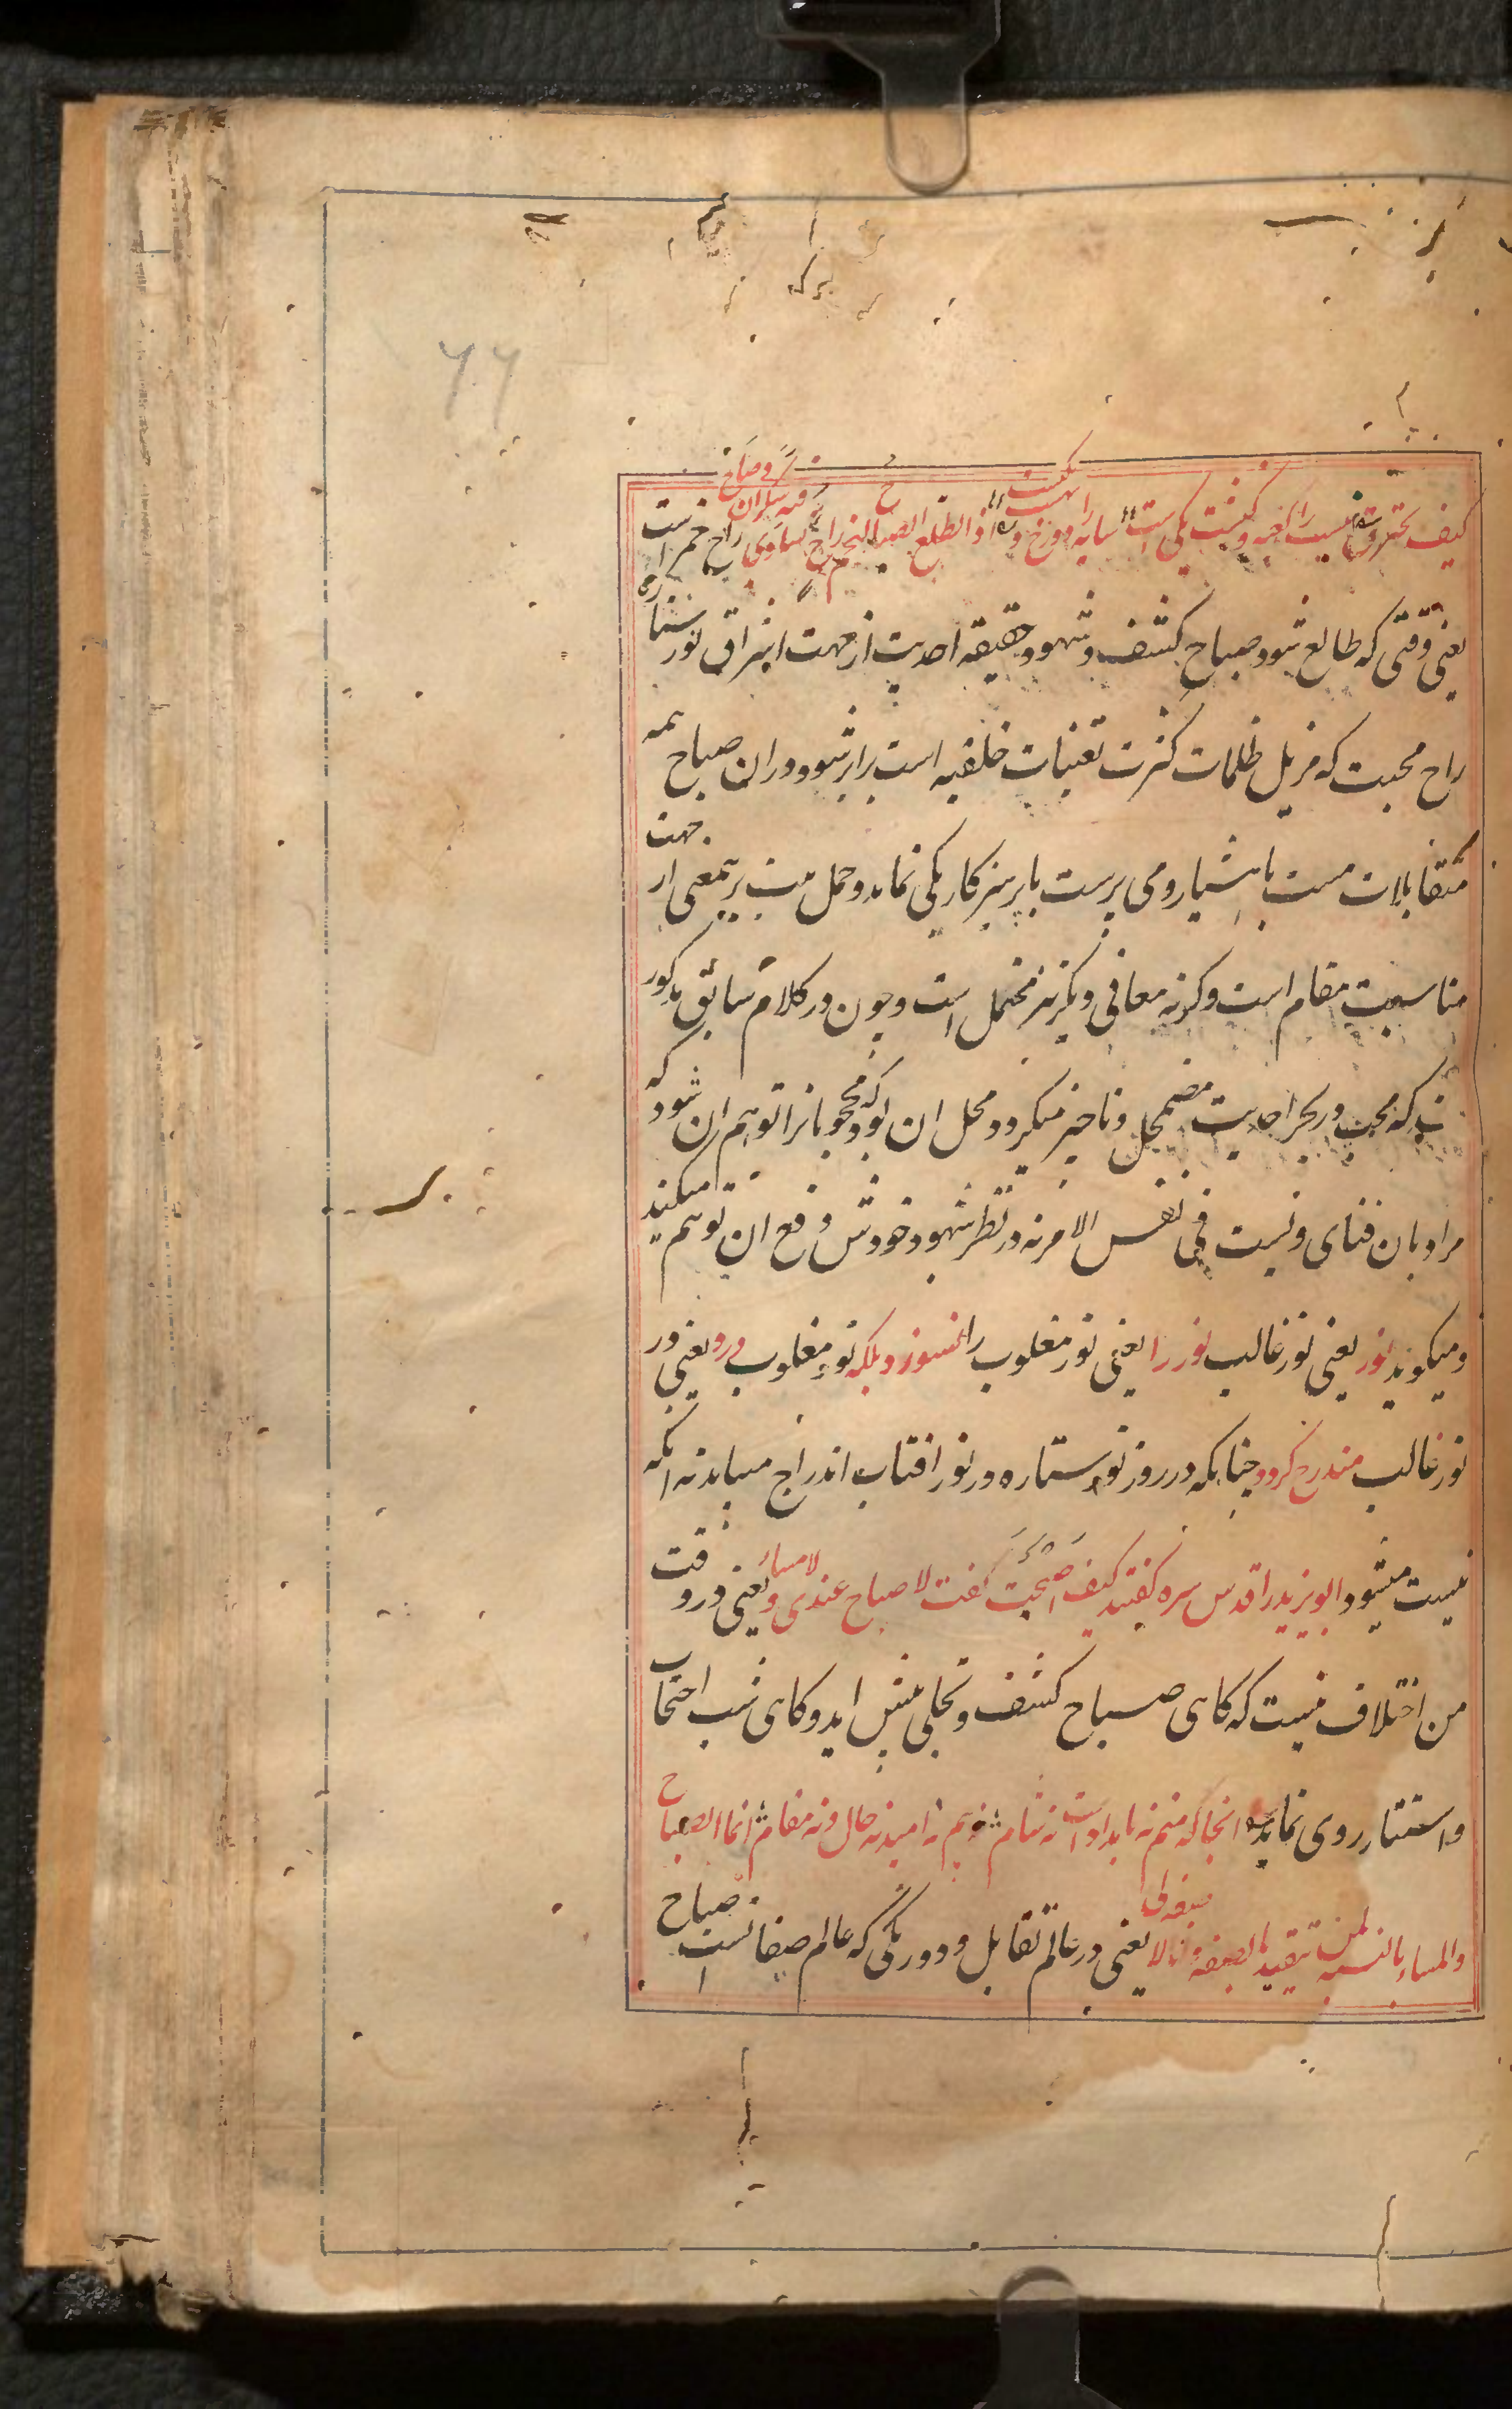 ۷۷
کیف یحترق نیست را کعبه و کنشت یکی است سایه را دوزخ و بهشت یکیست اذا طلع الصباح لنجم راح تساوی فیه سکران و صاح راح خمر است
یعنی وقتی که طالع شود صباح کشف و شهود حقیقه احدیت از جهت اشراق نور ستاره
راح محبت که مزیل ظلمات کثرت تعینات خلقیه است برابر شود و دران صباح همه
متقابلات مست با هشیار و می پرست با پرهیزکار یکی نماید و حمل بیت برین معنی از جهت
مناسبت مقام است و کرنه معانی دیکر نیز محتمل است و چون در کلام سابق مذکور
که محب در بحر احدیت مضمحل و ناچیز میکردد محل ان بود که محجوبانرا توهم ان شود که
مراد بان فنای ونیست فی نفس الامر نه در نظر شهود خودش دفع ان توهم میکند
و میکوید نور یعنی نور غالب نور را یعنی نور مغلوب را نسوزد بلکه نور مغلوب درو یعنی در
نور غالب مندرج کردد چنانکه در روز نور ستاره در نور افتاب اندراج میابد نه انکه
نیست میشود ابو یزید را قدس سره کفتند کیف اصبحت کفت لا صباح عندی و لا مساء یعنی در وقت
من اختلاف نیست که کاهی صباح کشف و تجلی پیش اید و کاهی شب احتجاب
و استتار روی نماید انجا که منم نه بامداد است نه شام نه بیم نه امید نه حال و نه مقام انما الصباح
والمساء بالنسبه لمن تقید بالصفه و انا لا صفه لی یعنی در عالم تقابل و دورنکی که عالم صفاتست صباح